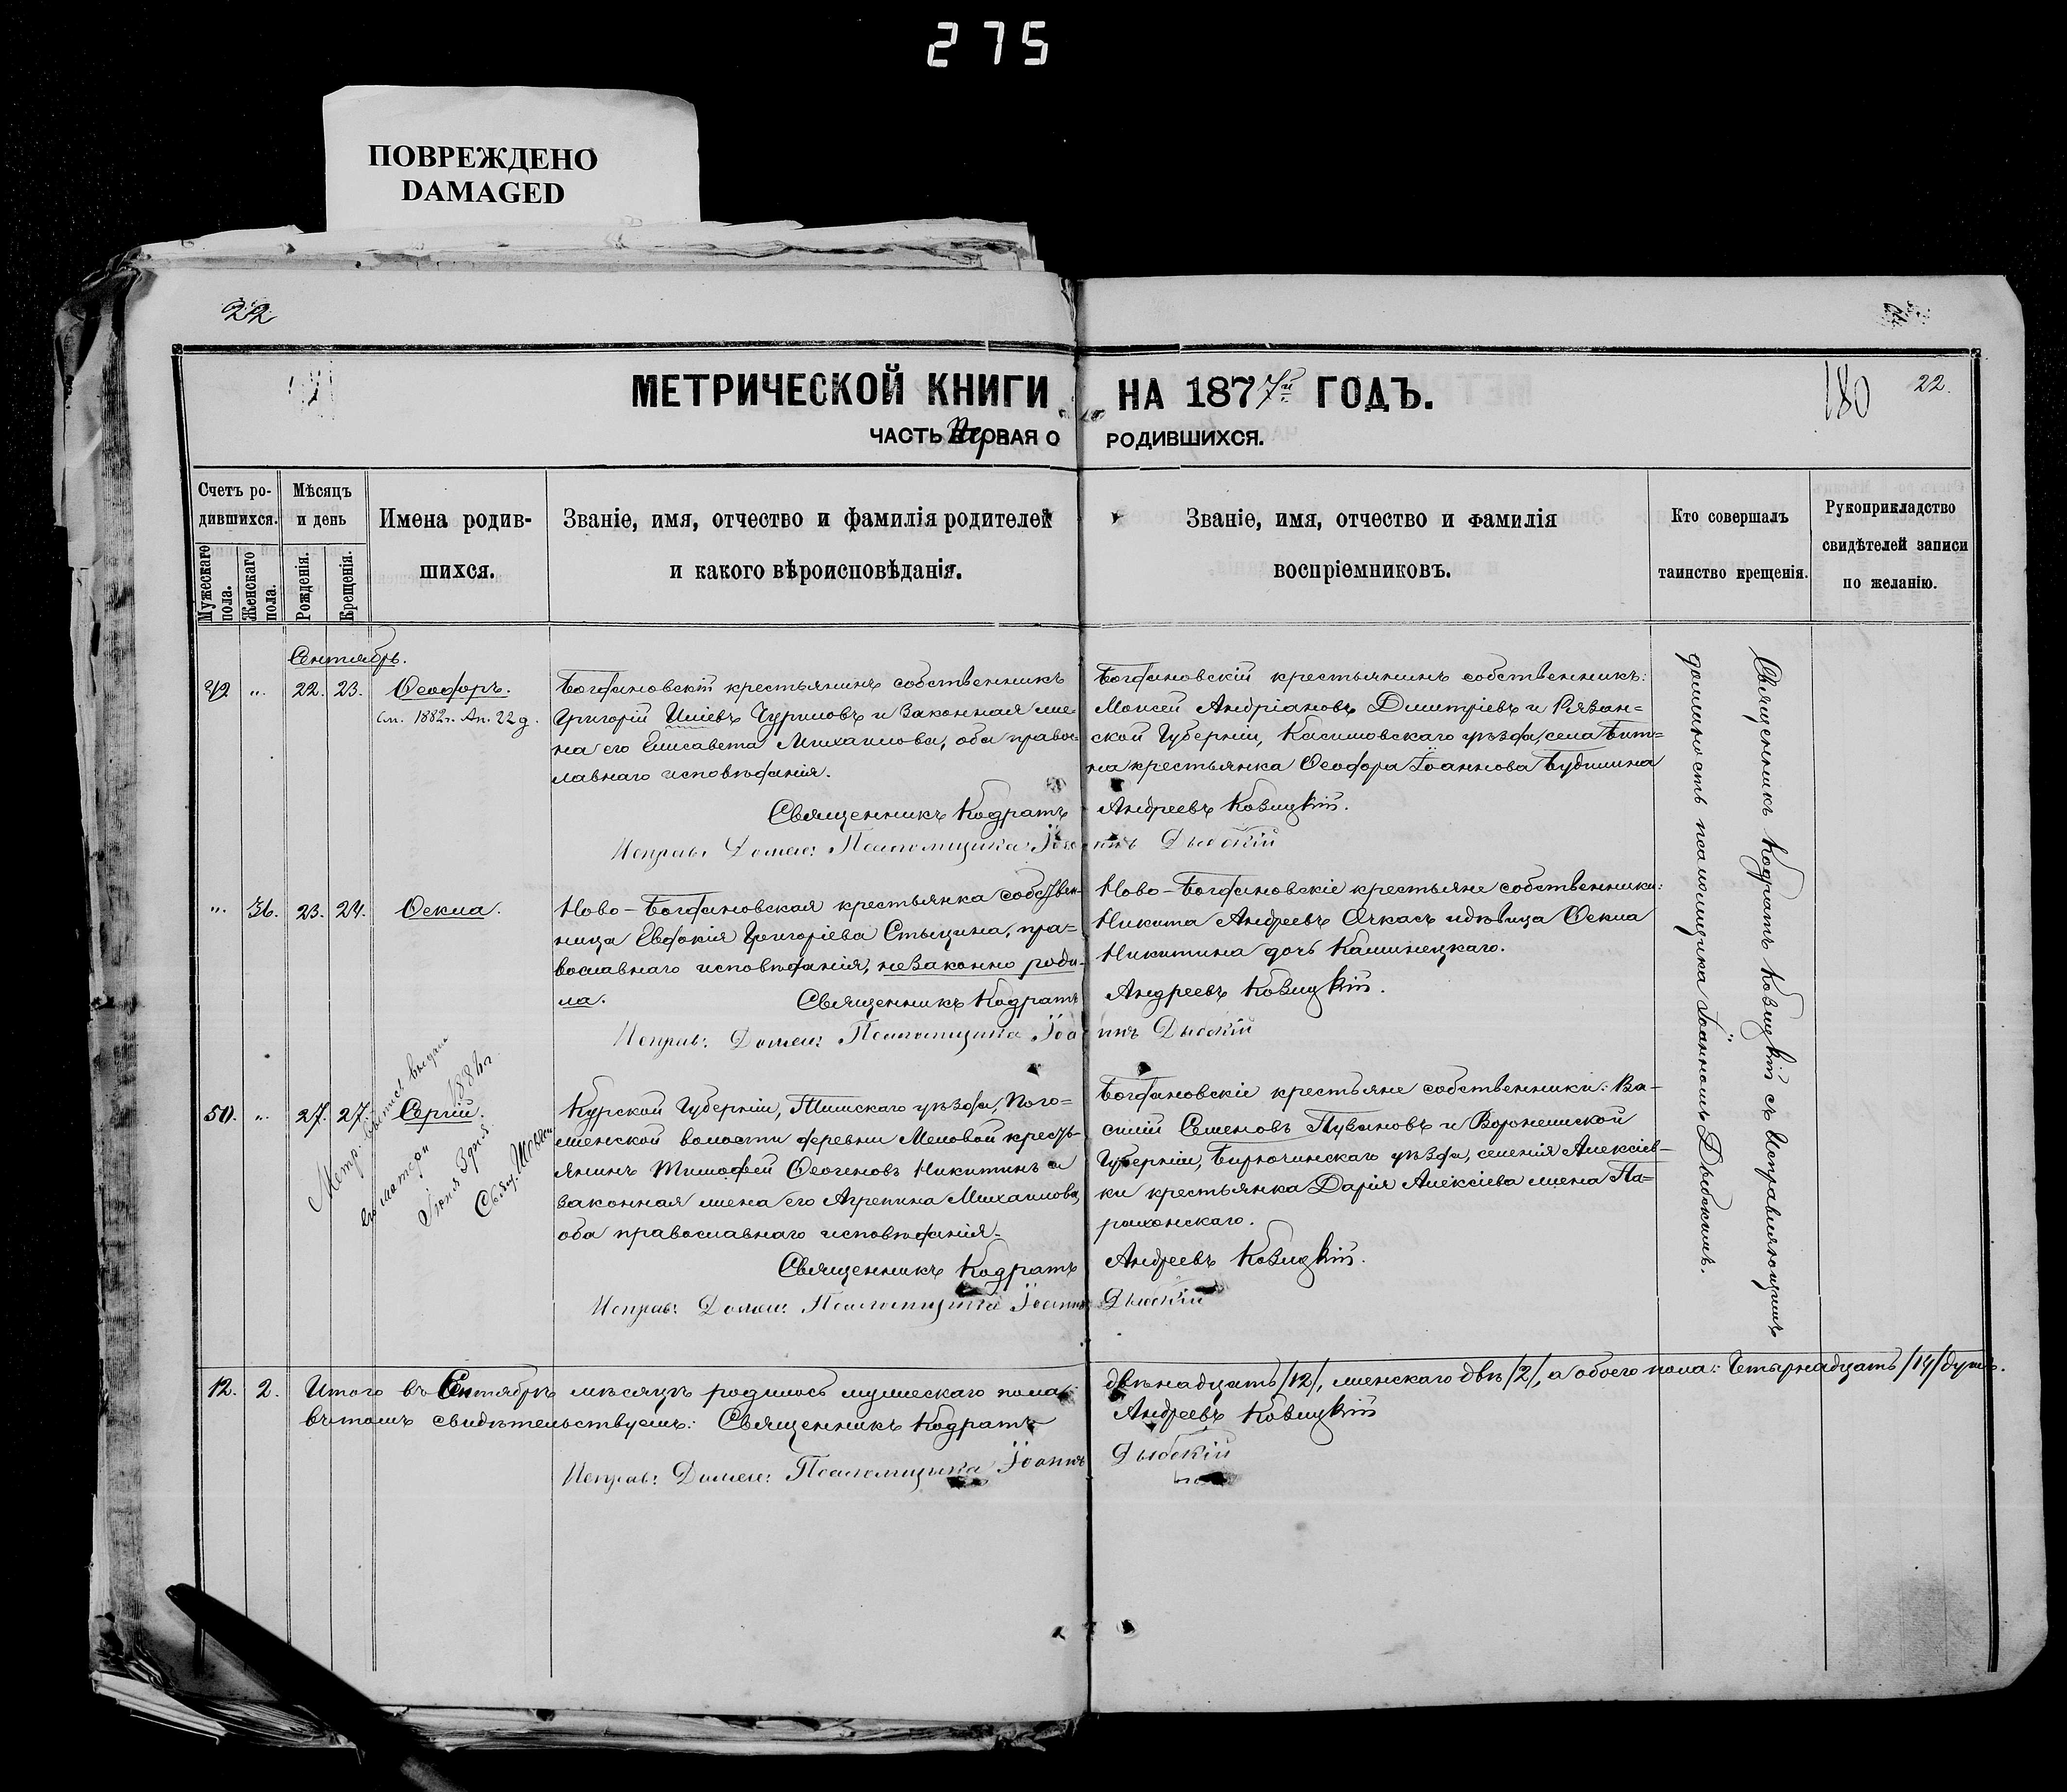 275
ПОВРЕЖДЕНО
DAMAGED
22
МЕТРИЧЕСКОЙ КНИГИ НА 1877й ГОДЪ.
180
22.
ЧАСТЬ Первая О РОДИВШИХСЯ.
Счетъ ро-
дившихся.
Мужескаго пола.
Женскаго пола.
Мѣсяцъ
и день
Рожденія.
Крещенія.
Имена родив-
шихся.
Званіе, имя, отчество и фамилія родителей
и какого вѣроисповѣданія.
Званіе, имя, отчество и фамилія
воспріемниковъ.
Кто совершалъ
таинство крещенія.
Рукоприкладство
свидѣтелей записи
по желанію.
Сентябрь.
22. 23. Ѳеодоръ.
1882г. Ап. 22 д.
Богдановскій крестьянинъ собственникъ
Григорій Иліевъ Чуриловъ и законная же-
на его Елисавета Михаилова, оба правос-
лавнаго исповѣданія.
Священникъ Кодратъ
Исправ: Долж: Псаломщика Іоа
Богдановскій крестьянинъ собственникъ:
Моисей Андріановъ Димитріевъ и Рязан=
ской Губерніи, Касимовскаго уѣзда, села
крестьянка Ѳеодора Іоаннова
Андреевъ Ковицкій.
ннъ Дыбскій
„ 36. 23. 24. Ѳекла.
Ново-Богдановская крестьянка собствен-
ница Евдокія Григоріева Стыцина, пра=
вославнаго исповѣданія, незаконно роди-
ла.
Священникъ Кодратъ
Исправ: Долж: Псаломщика Іоа
Ново-Богдановскіе крестьяне собственники:
Никита Андреевъ Очкасъ и дѣвица Ѳекла
Никитина дочь Калинецкаго.
Андреевъ Ковицкій.
ннъ Дыбскій
50. „ 27. 27. Сергій.
Метр:
его матери
Іюня 3 дня
1886г.
Свящ.
Курской Губерніи, Тимскаго уѣзда, Пого=
женской волости деревни Меловой кресть-
янинъ Тимофей Ѳеогеновъ Никитинъ и
законная жена его Агрепина Михаилова,
оба православнаго исповѣданія.
Священникъ Кодратъ
Исправ: Долж: Псаломщика Іоаннъ
Богдановскіе крестьяне собственники: Ва-
силій Семеновъ Пузановъ и Воронежской
Губерніи, Бирючинскаго уѣзда, селенія Алексіев-
ки крестьянка Дарія Алексіева жена Па=
рахонскаго.
Андреевъ Ковицкій.
Дыбскій
Священникъ Кодратъ Ковицкій съ Исправляющимъ
должность псаломщика Іоанномъ Дыбскимъ.
12. 2. Итого въ Сентябрѣ мѣсяцѣ родилось мужескаго пола: двѣнадцать /12/, женскаго двѣ /2/, а обоего пола: Четырнадцать /14/ душъ.
въ томъ свидѣтельствуемъ: Священникъ Кодратъ Андреевъ Ковицкій
Исправ: Долж: Псаломщика Іоаннъ Дыбскій